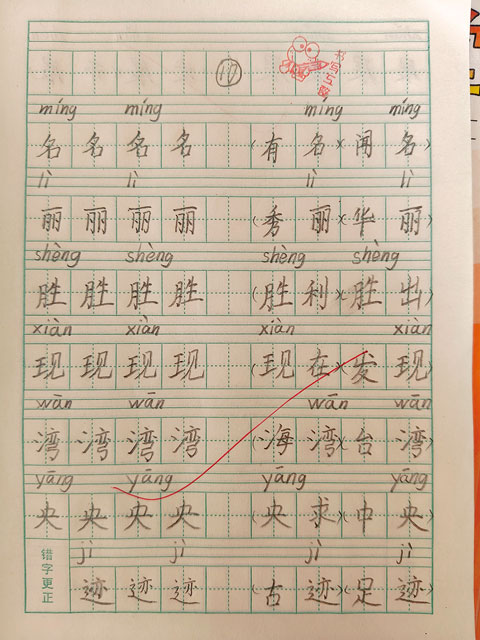 17
míng míng míng míng
名 名 名 名 (有 名)(闻 名)
lì lì lì lì
丽 丽 丽 丽 (秀 丽)(华 丽)
shèng shèng shèng shèng
胜 胜 胜 胜 (胜 利)(胜 出)
xiàn xiàn xiàn xiàn
现 现 现 现 (现 在)(发 现)
wān wān wān wān
湾 湾 湾 湾 (海 湾)(台 湾)
yāng yāng yāng yāng
央 央 央 央 (央 求)(中 央)
jì jì jì jì
迹 迹 迹 (古 迹)(足 迹)
错字更正